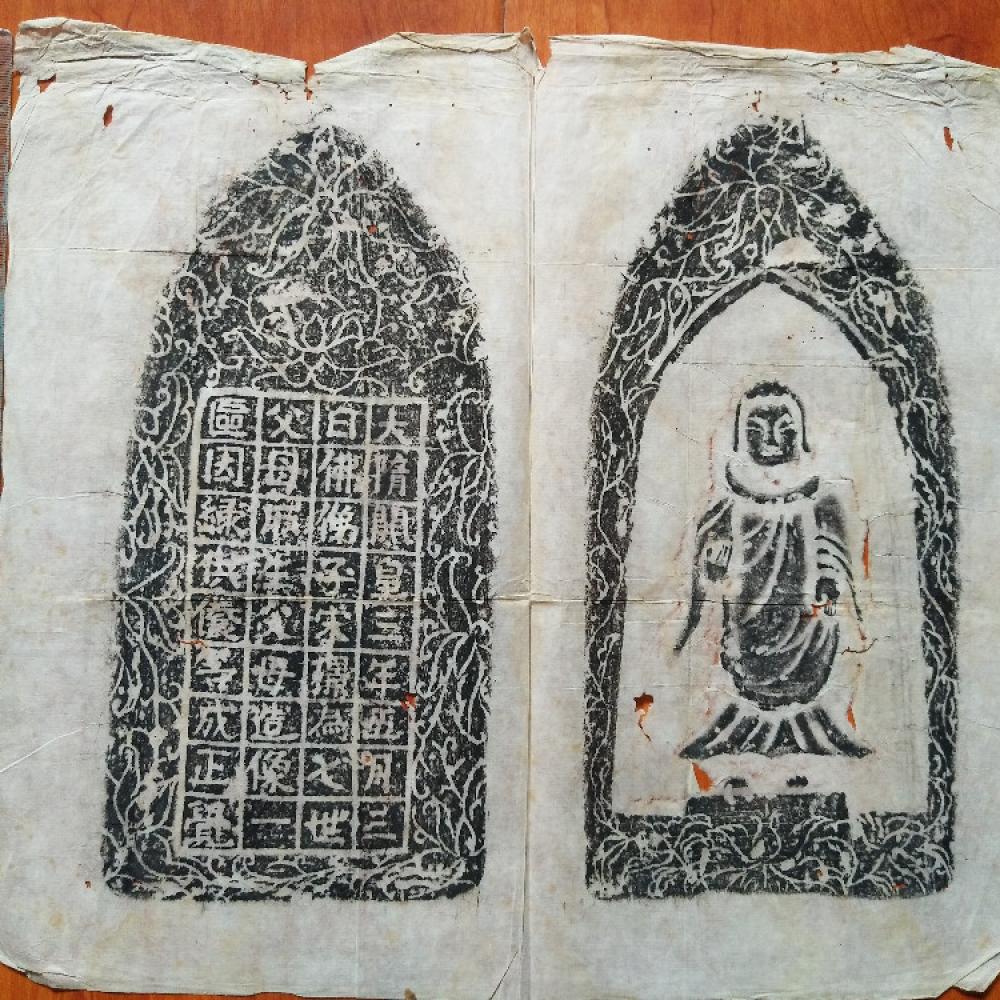 大隋開皇三年五月三
日佛弟子宋為七世
父母所生父母造像一
區因緣供養等成正覺